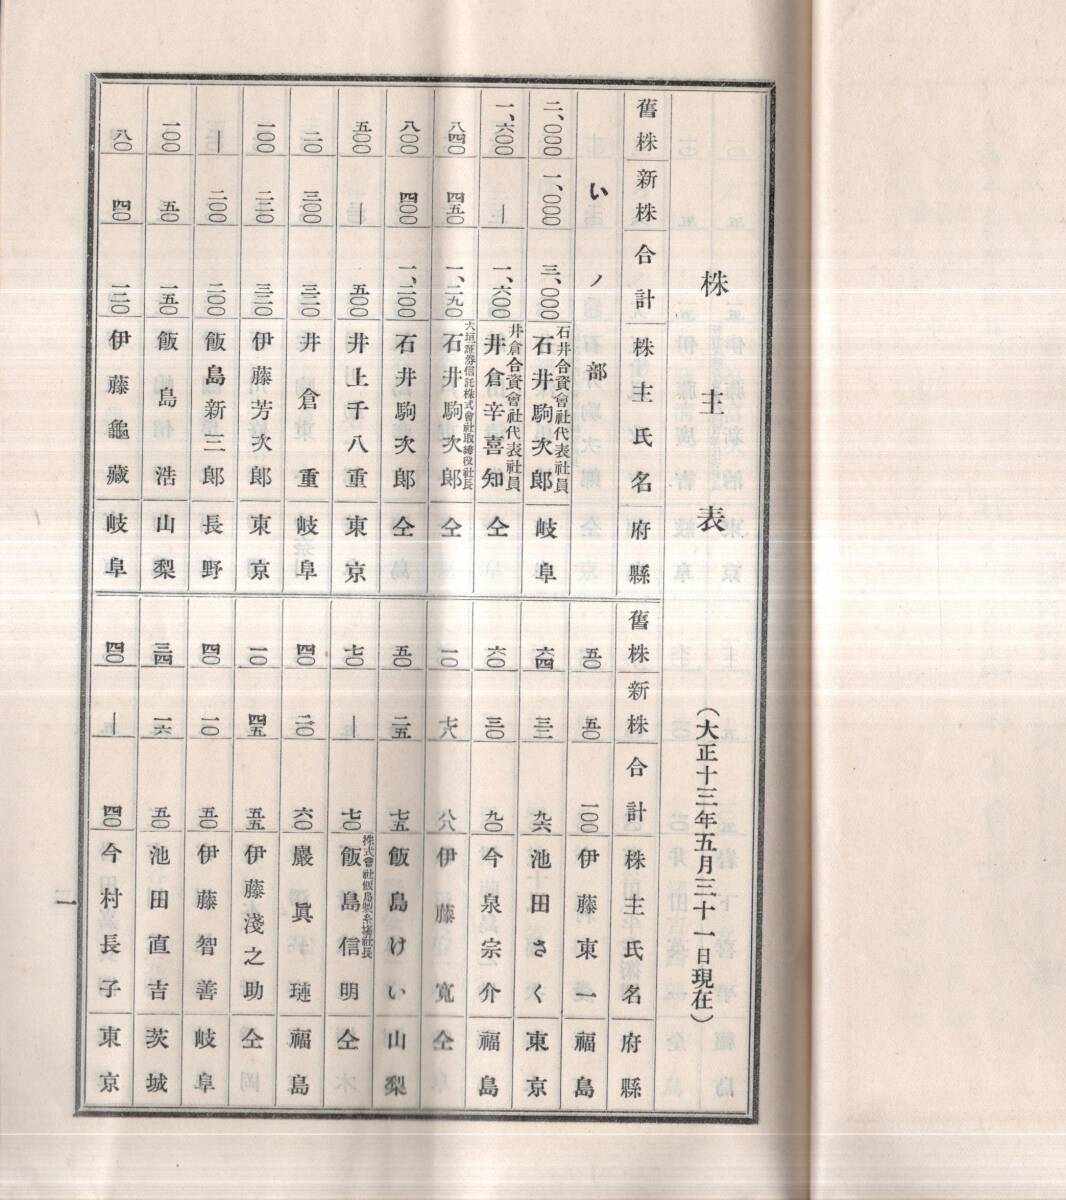 株主表
(大正十三年五月三十一日現在)
舊株 新株 合計 株主氏名 府縣
い ノ 部
二、〇〇〇 一、〇〇〇 三、〇〇〇 石井合資會社代表社員 石井駒次郎 岐阜
一、六〇〇 ｜ 一、六〇〇 井倉合資會社代表社員 井倉辛喜知 仝
八四〇 四五〇 一、二九〇 大垣証券信託株式會社取締役社長 石井駒次郎 仝
八〇〇 四〇〇 一、二〇〇 石井駒次郎 仝
五〇〇 ｜ 五〇〇 井上千八重 東京
二〇 三〇〇 三二〇 井倉重 岐阜
一〇〇 二二〇 三二〇 伊藤芳次郎 東京
｜ 二〇〇 二〇〇 飯島新三郎 長野
一〇〇 五〇 一五〇 飯島浩 山梨
八〇 四〇 一二〇 伊藤龜藏 岐阜
舊株 新株 合計 株主氏名 府縣
五〇 五〇 一〇〇 伊藤東一 福島
六四 三二 九六 池田さく 東京
六〇 三〇 九〇 今泉宗介 福島
一〇 七八 八八 伊藤寛 仝
五〇 二五 七五 飯島けい 山梨
七〇 ｜ 七〇 株式會社飯島製糸場社長 飯島信明 仝
四〇 二〇 六〇 嚴眞璉 福島
一〇 四五 五五 伊藤淺之助 仝
四〇 一〇 五〇 伊藤智善 岐阜
三四 一六 五〇 池田直吉 茨城
四〇 ｜ 四〇 今村長子 東京
一